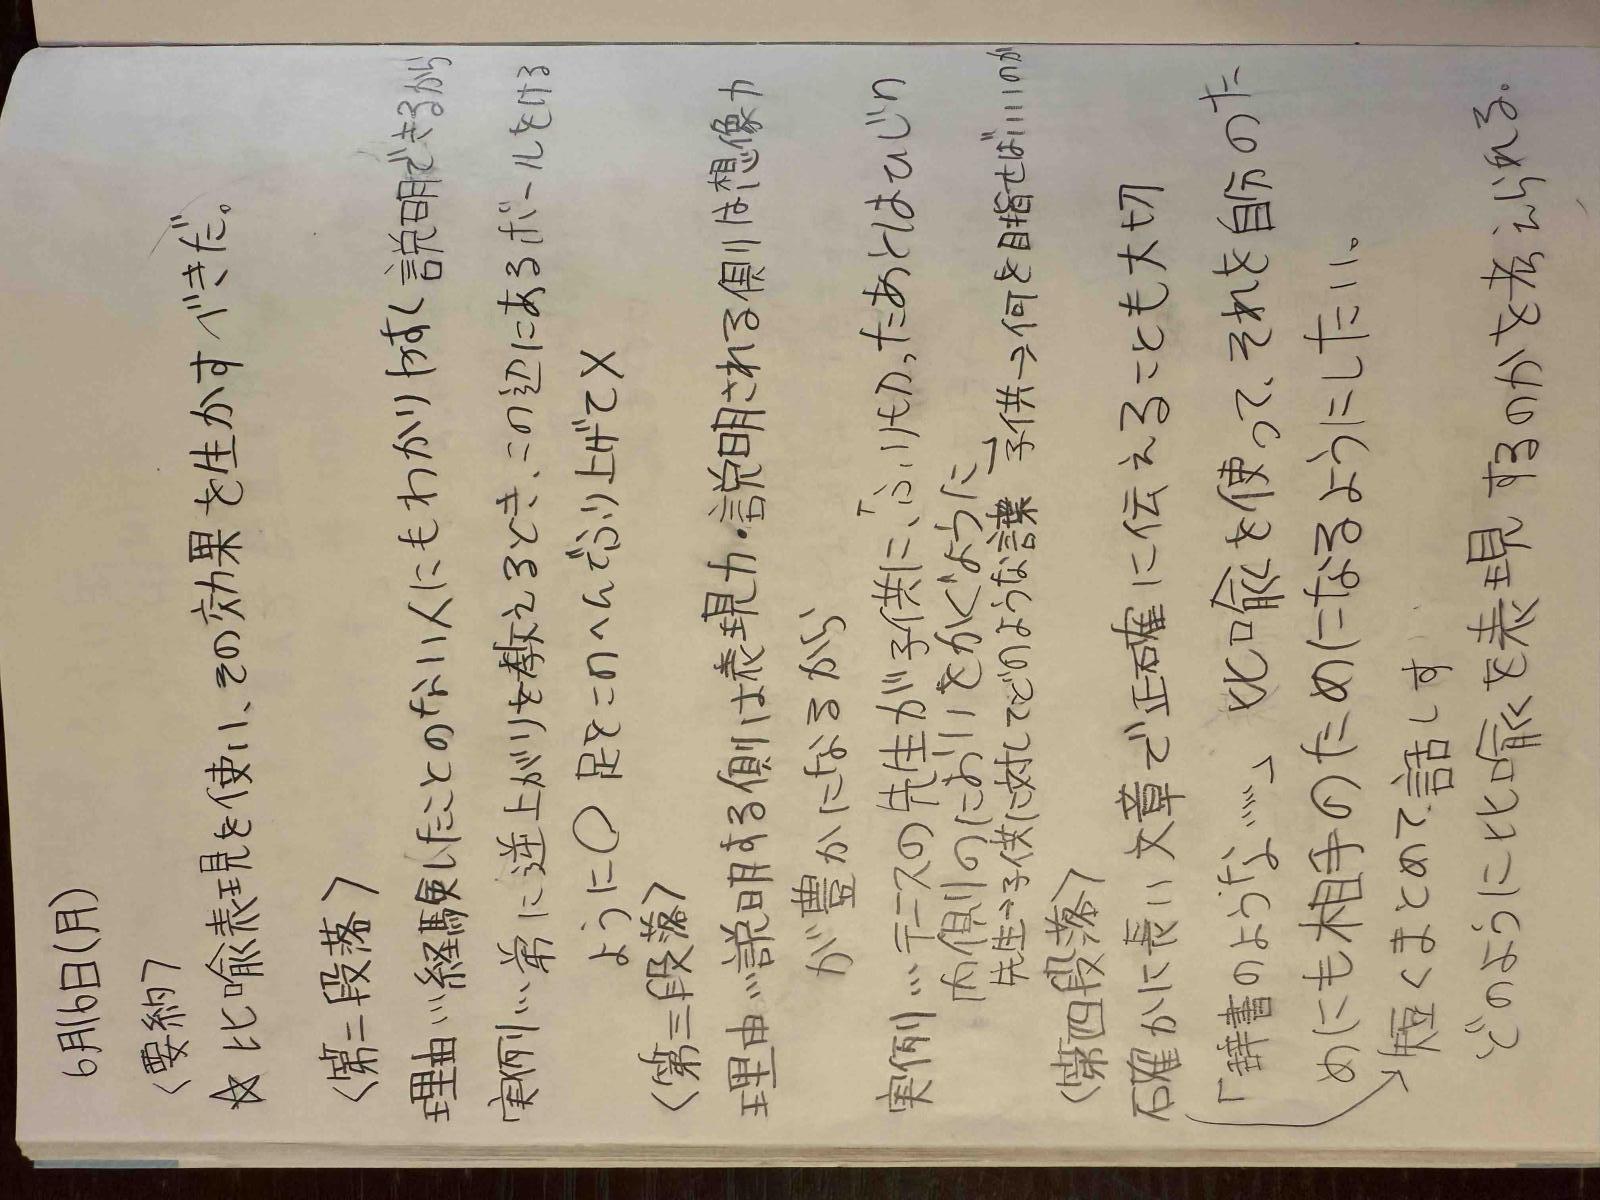 6月16日(月)
〈要約〉
☆比喩表現を使い、その効果を生かすべきだ。
〈第二段落〉
理由…経験したことのない人にもわかりやすく説明できるから
実例…弟に逆上がりを教えるとき、この辺にあるボールをける
ように〇 足をこのへんでふり上げて×
〈第三段落〉
理由…説明する側は表現力・説明される側は想像力
が豊かになるから
実例…テニスの先生が子供に、「ふり切ったあとはひじの
内側のにおいをかぐように」
先生→子供に対してどのような言葉 子供→何を目指せばいいのか
〈第四段落〉
確かに長い文章で正確に伝えることも大切
「辞書のような…」 比喩を使って、それを自分のた
めにも相手のためになるようにしたい。
→短くまとめて話しす
どのように比喩を表現するのかを考えられる。